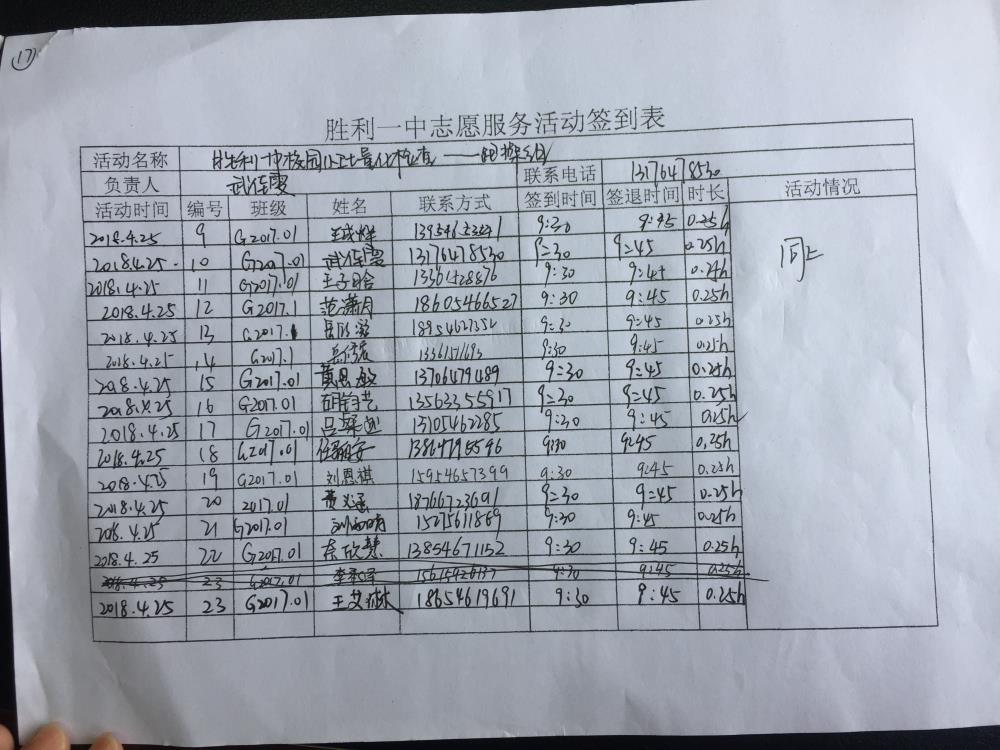 17
胜利一中志愿服务活动签到表
活动名称 胜利一中校园卫生量化检查
负责人 武连霞 联系电话 13176478530
活动时间 编号 班级 姓名 联系方式 签到时间 签退时间 时长 活动情况
2018.4.25 9 G2017.01 9:30 9:45 0.25h 同上
2018.4.25 10 G2017.01 武连霞 13176478530 9:30 9:45 0.25h
2018.4.25 11 G2017.01 王子晗 9:30
2018.4.25 12 G2017.1 范潇月 18605466527 9:30 9:45 0.25h
2018.4.25 13 G2017.1 18954627352 9:30 9:45 0.25h
2018.4.25 14 G2017.1 9:30 9:45 0.25h
2018.4.25 15 G2017.01 13706479489 9:30 9:45 0.25h
2018.4.25 16 G2017.01 13563355917 9:30 9:45 0.25h
2018.4.25 17 G2017.01 13105462285 9:30 9:45 0.25h
2018.4.25 18 G2017.01 9:30 9:45 0.25h
2018.4.25 19 G2017.01 刘恩祺 15954657399 9:30 9:45 0.25h
2018.4.25 20 2017.01 18766723691 9:30 9:45 0.25h
2018.4.25 21 G2017.01 15275611869 9:30 9:45 0.25h
2018.4.25 22 G2017.01 秦欣慧 13854671152 9:30 9:45 0.25h
2018.4.25 23 G2017.01 9:30 9:45 0.25h
2018.4.25 23 G2017.01 王艾琳 18654619691 9:30 9:45 0.25h